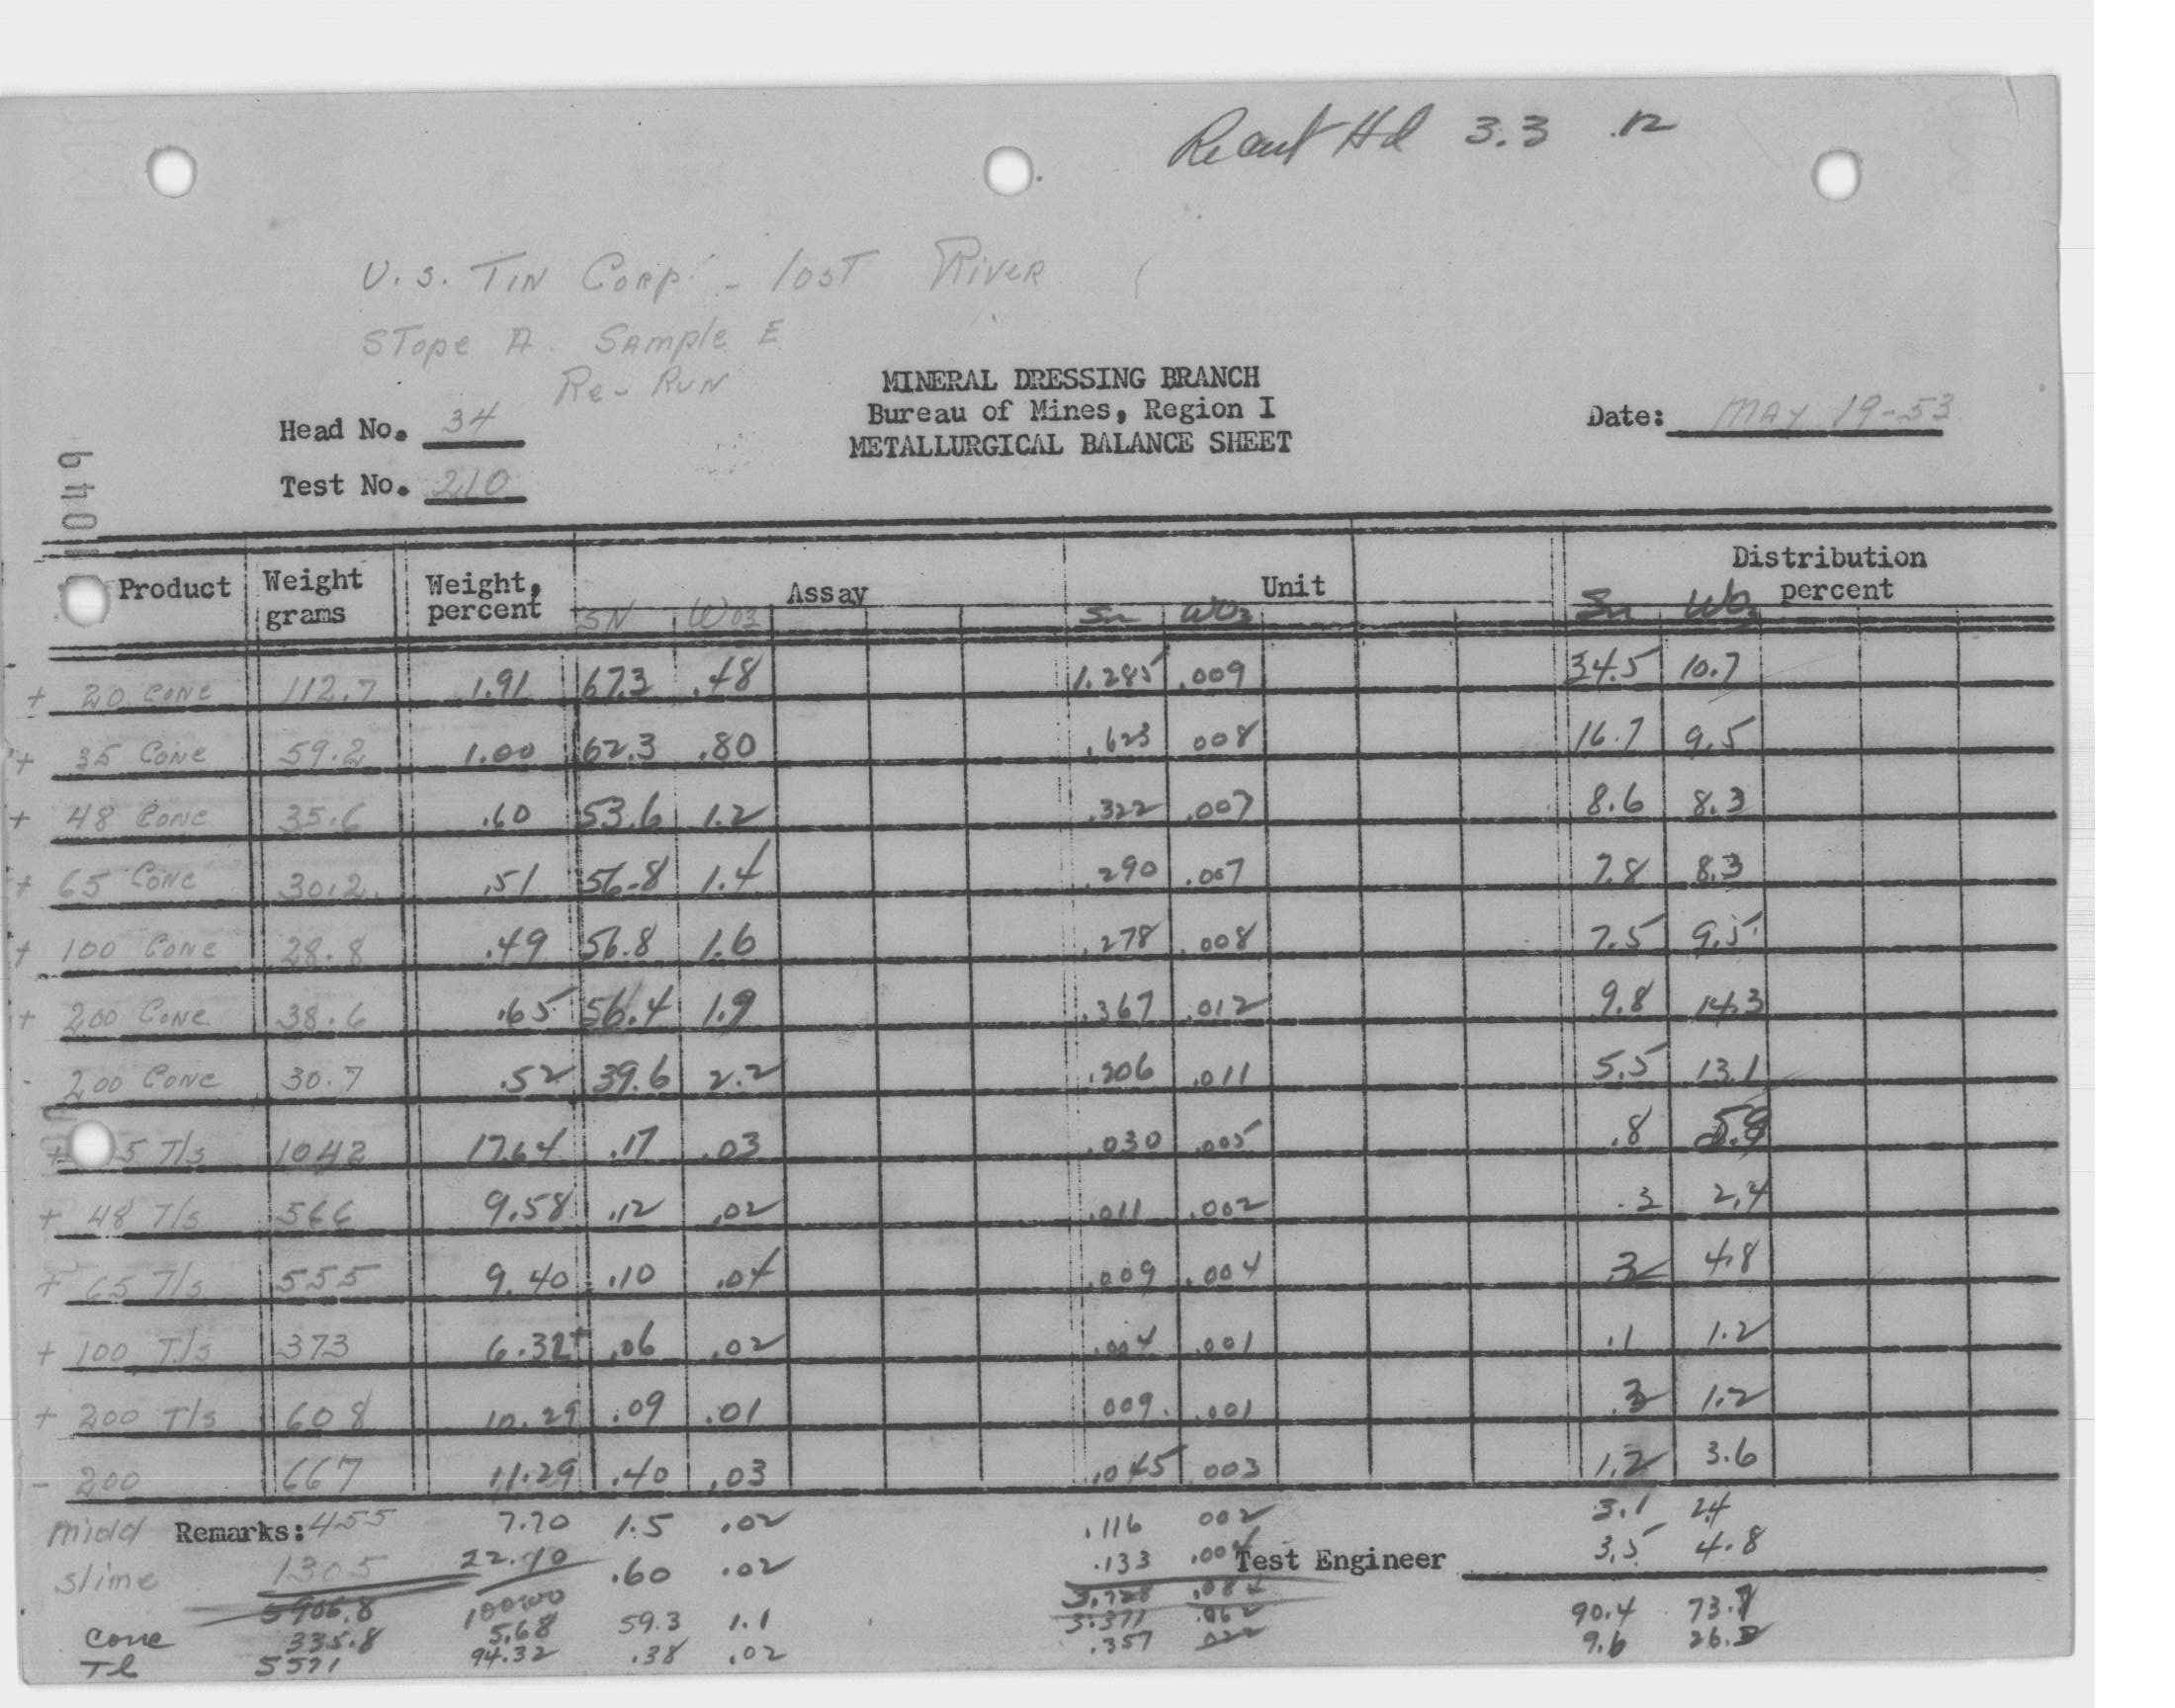 Recast Hd 3.3 .12
U.S. TIN CORP. - lOST RIVER
STope A. SAmple E
Re-RUN
MINERAL DRESSING BRANCH
Bureau of Mines, Region I
METALLURGICAL BALANCE SHEET
Head No. 34
Date: MAY 19-53
Test No. 210
Product Weight grams Weight, percent Assay Unit Distribution percent
SN WO3 Sn WO3 Sn WO3
+ 20 CONC 112.7 1.91 67.3 .48 1.285 .009 34.5 10.7
+ 35 CONC 59.2 1.00 62.3 .80 .623 008 16.7 9.5
+ 48 CONC 35.6 .60 53.6 1.2 .322 .007 8.6 8.3
+ 65 CONC 30.2 .51 56.8 1.4 .290 .007 7.8 8.3
+ 100 CONC 28.8 .49 56.8 1.6 .278 .008 7.5 9.5
+ 200 CONC 38.6 .65 56.4 1.9 .367 .012 9.8 14.3
- 200 CONC 30.7 .52 39.6 2.2 .206 .011 5.5 13.1
+ 5 T/s 1042 17.64 .17 .03 .030 .005 .8 5.9
+ 48 T/s 566 9.58 .12 .02 .011 .002 .3 2.4
+ 65 T/s 555 9.40 .10 .04 .009 .004 .2 4.8
+ 100 T/s 373 6.32+ .06 .02 .004 .001 .1 1.2
+ 200 T/s 608 10.29 .09 .01 009 .001 .2 1.2
- 200 667 11.29 .40 .03 .045 003 1.2 3.6
midd Remarks: 455 7.70 1.5 .02 .116 002 3.1 2.4
slime 1305 22.10 .60 .02 .133 .004 Test Engineer 3.5 4.8
5906.8 100.00 3.728 .084
Conc 335.8 5.68 59.3 1.1 3.371 .062 90.4 73.7
Tl 5571 94.32 .38 .02 .357 022 9.6 26.3